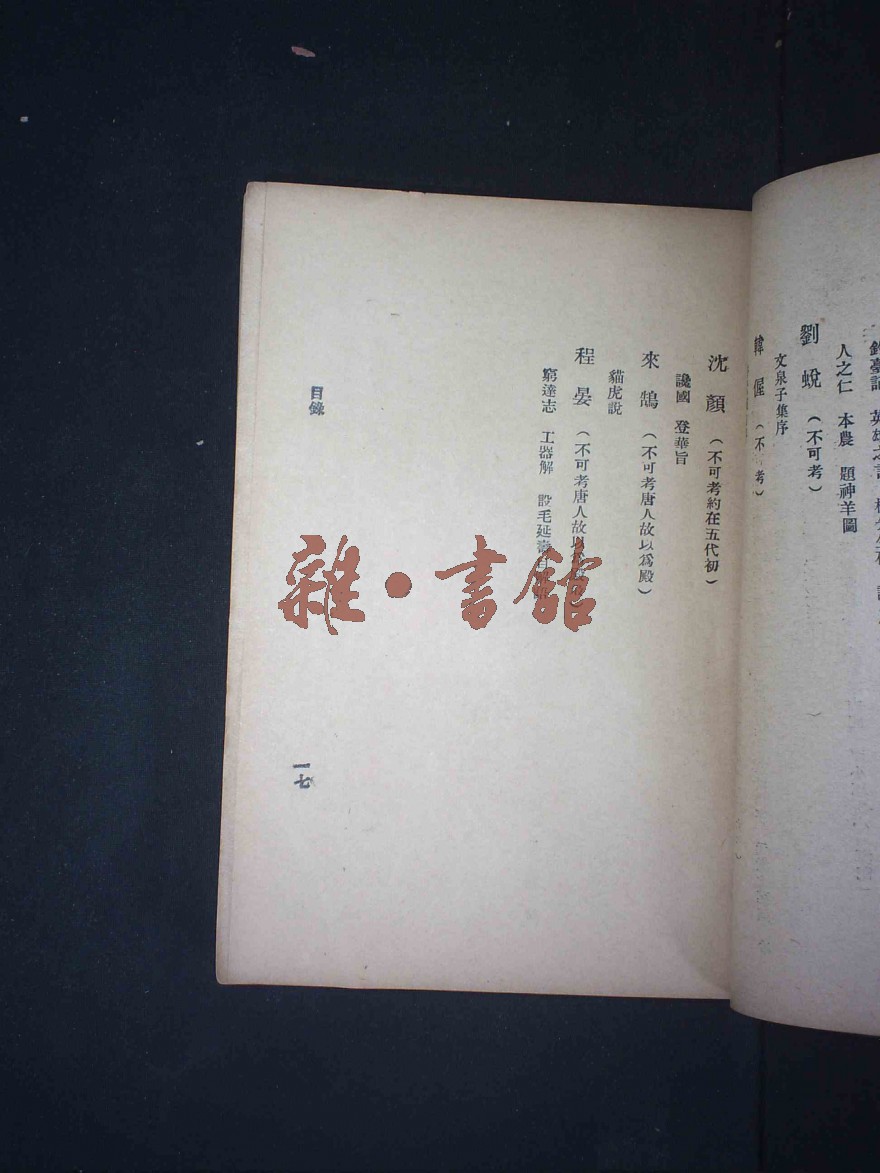 人之仁 本農 題神羊圖
劉蛻 （不可考）
文泉子集序
韓偓 （不 考）
沈顏 （不可考約在五代初）
讒國 登華旨
來鵠 （不可考唐人故以為殿）
貓虎說
程晏 （不可考唐人故以
窮達志 工器解 設毛延壽自
目錄
雜·書館